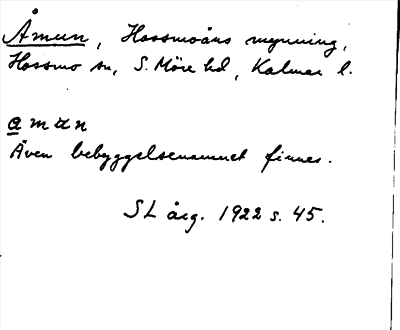 Åmun, Hossmoåns mynning,
Hossmo sn, S. Möre hd, Kalmar l.
amun
Även bebyggelsenamnet finnes.
SL årg. 1922 s. 45.